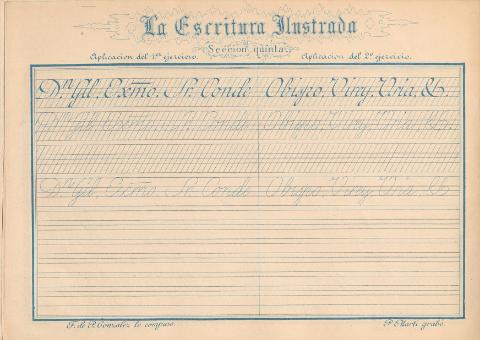 La Escritura Ilustrada
Sección quinta.
Aplicacion del 1er. ejercicio. Aplicacion del 2º ejercicio.
Dn. Gil. Exmo. Sr. Conde Obispo, Virey, Vria, &.
Dn. Gil. Exmo. Sr. Conde Obispo, Virey, Vria, &.
Dn. Gil. Exmo. Sr. Conde Obispo, Virey, Vria, &
F. de P. Gonzalez lo compuso. P. Marti grabó.